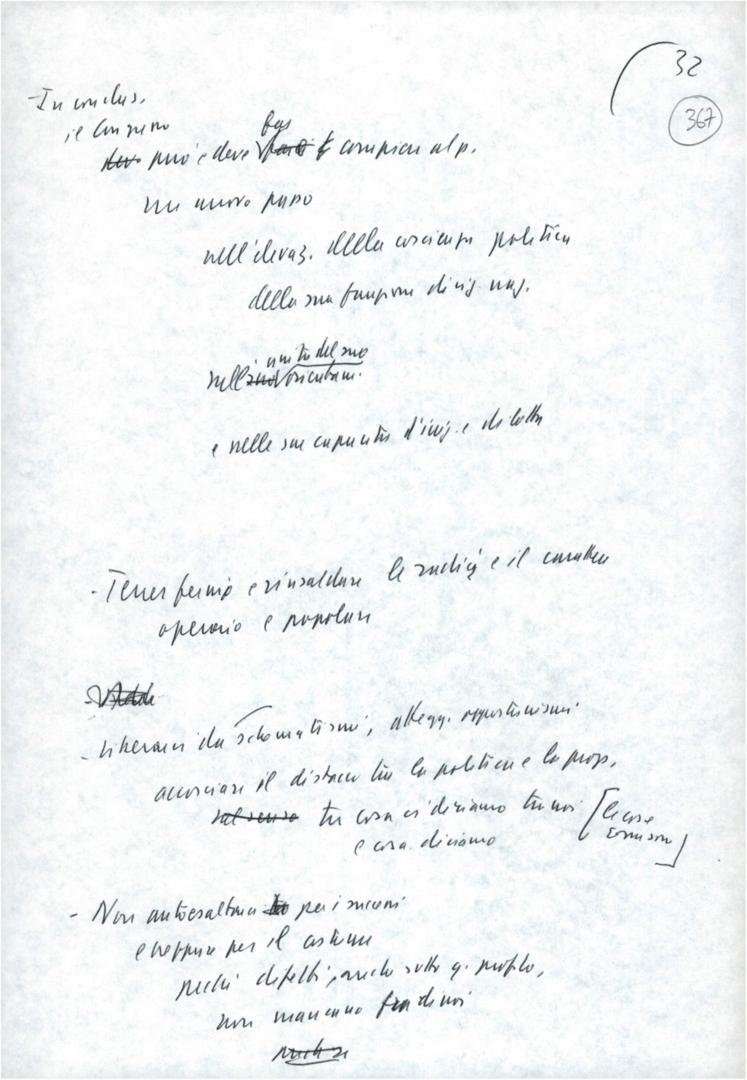 32
367
- In conclus.
il Congresso
può e deve far compiere al p.
un nuovo passo
nell'elevaz. della coscienza politica
della sua funzione dirig. naz.
nell'unità del suo orientam.
e nelle sue capacità d'iniz. e di lotta
- Tener fermo e rinsaldare le radici e il carattere
operaio e popolare
- Liberarci da schematismi, attegg. opportunismi
accorciare il distacco tra la politica e la prop.
tra cosa ci diciamo tra noi [le cose
e cosa diciamo ]
- Non autoesaltarci per i successi
e neppure per il costume
perché difetti, anche sotto q. profilo,
non mancano fra di noi